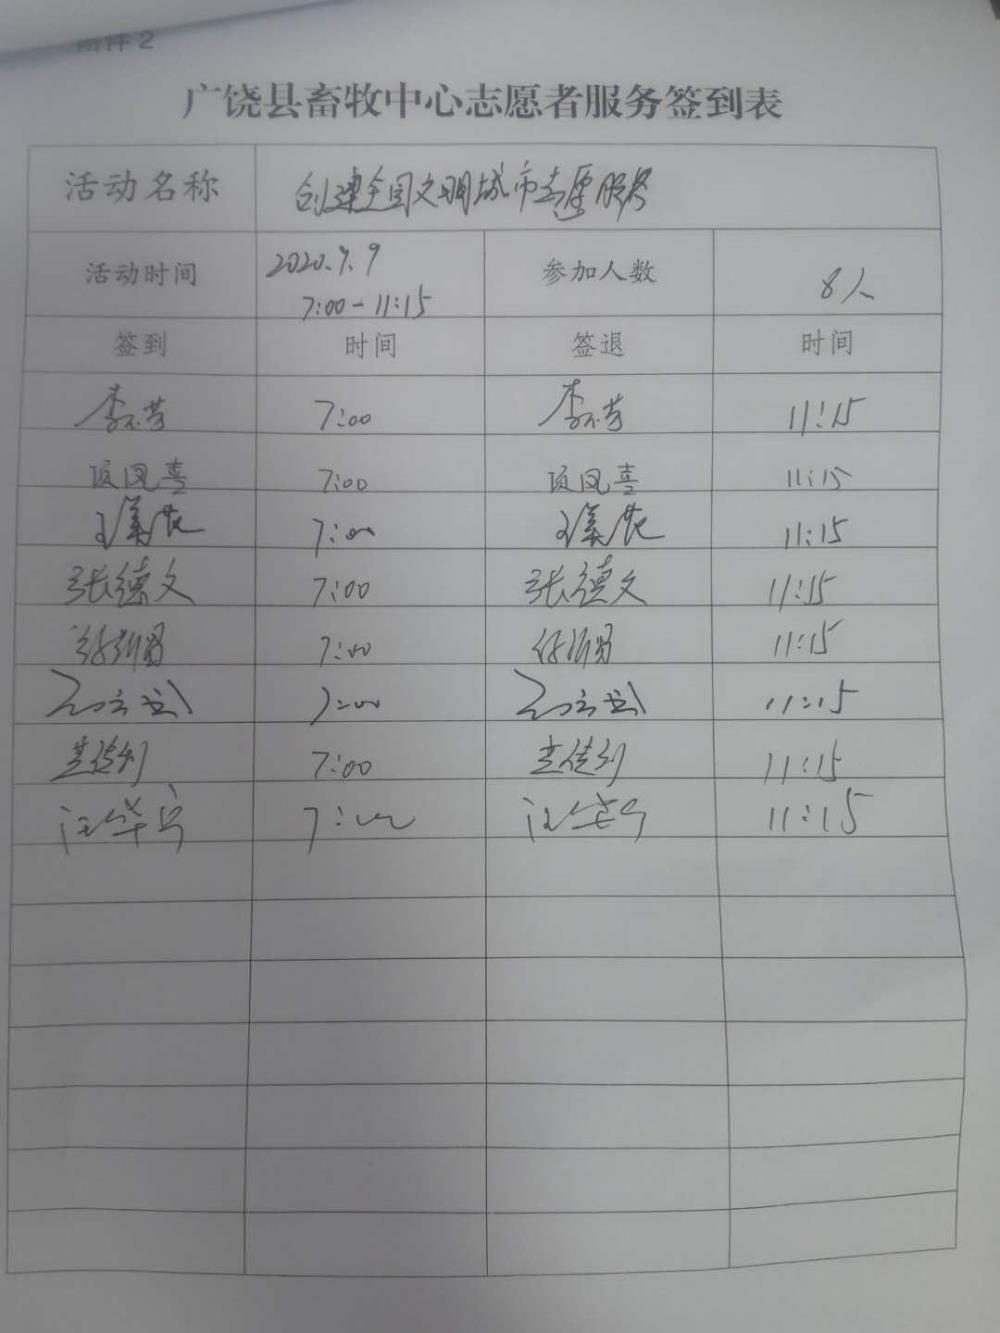 附件2
广饶县畜牧中心志愿者服务签到表
活动名称 创建全国文明城市志愿服务
活动时间 2020.7.9 7:00-11:15 参加人数 8人
签到 时间 签退 时间
7:00 11:15
项凤喜 7:00 项凤喜 11:15
7:00 11:15
张德文 7:00 张德文 11:15
7:00 11:15
7:00 11:15
7:00 11:15
7:00 11:15